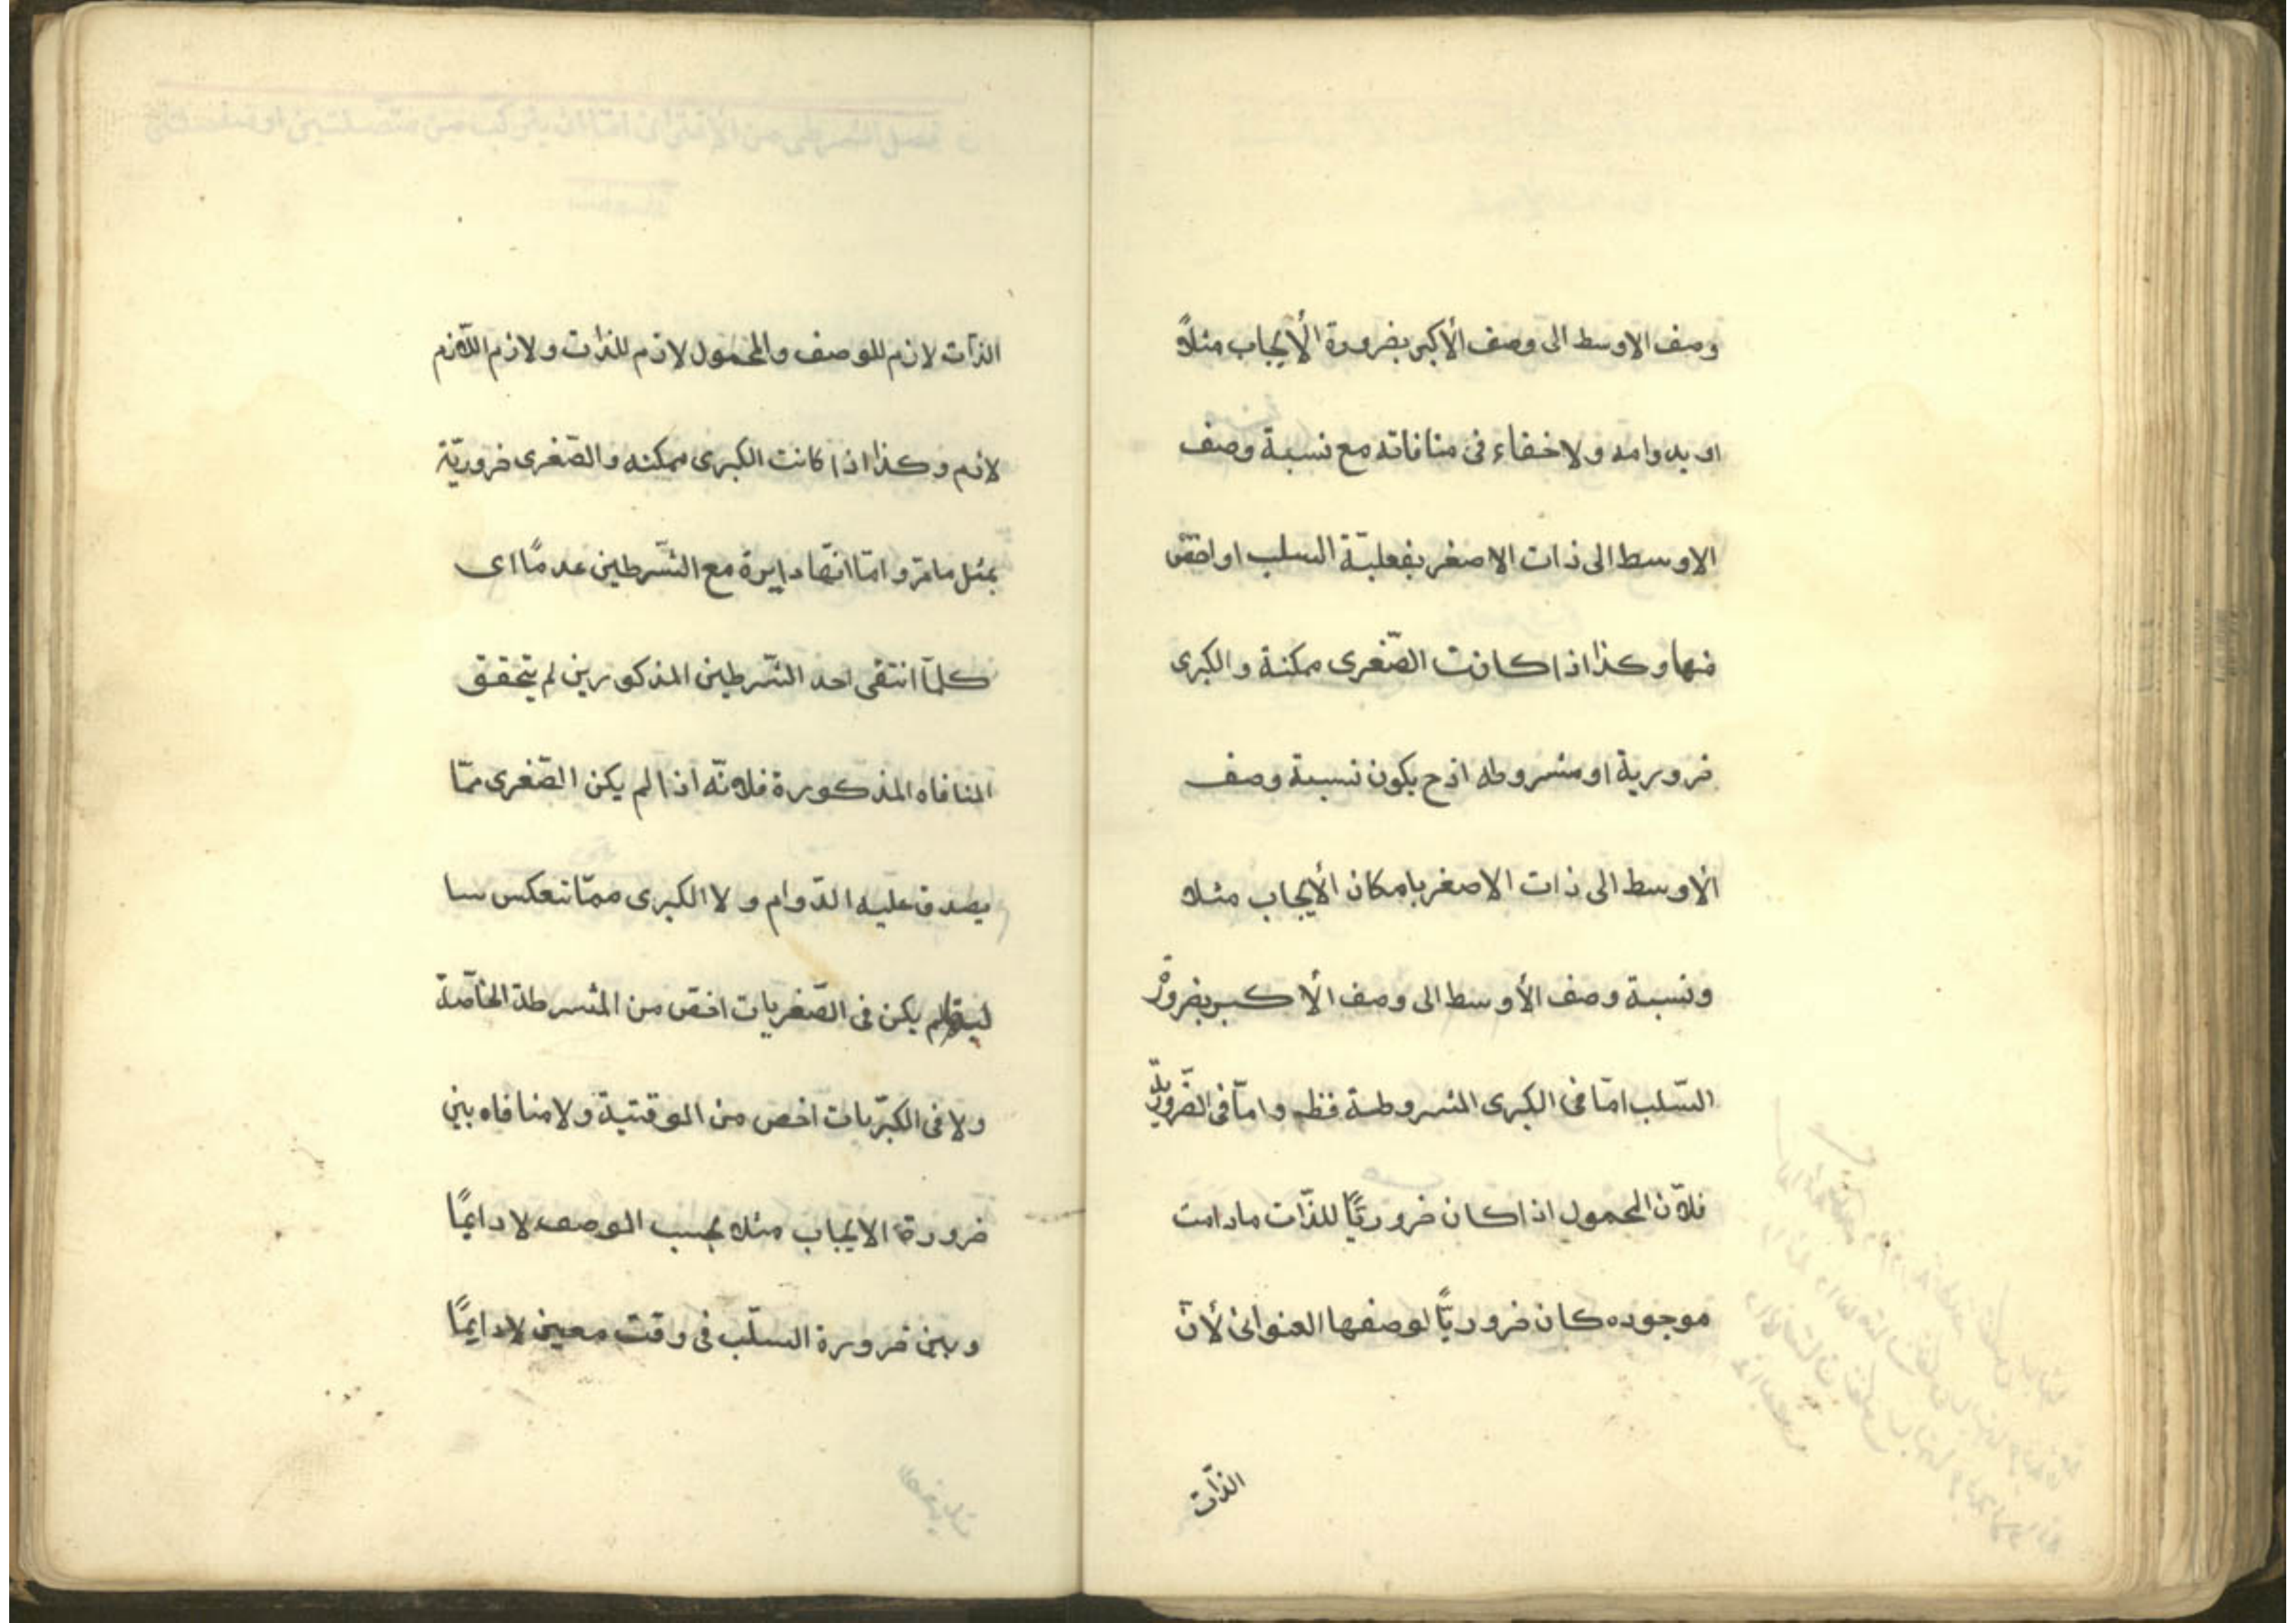 وصف الاوسط الى وصف الأكبر بضرورة الأيجاب مثلاً
او بدوامه ولاخفاء فى منافاته مع نسبة وصف
الاوسط الى ذات الاصغر بفعليّة السلب او اخصّ
منها وكذا اذا كانت الصّغرى ممكنة والكبرى
ضرورية او مشروطه اذ ح يكون نسبة وصف
الأوسط الى ذات الاصغر بامكان الأيجاب مثلا
ونسبة وصف الأوسط الى وصف الأكبر بضرورة
السّلب امّا فى الكبرى المشروطة فظ وامّا فى الضّروريّة
فلأن المحمول اذا كان ضروريًّا للذّات مادامت
موجوده كان ضروريًّا لوصفها العنوانى لأنّ
الذّات
الذّات لازم للوصف والمحمول لازم للذّات ولازم اللّازم
لازم وكذا اذا كانت الكبرى ممكنه والصّغرى ضروريّة
بمثل مامرّ وامّا انّها دايرة مع الشّرطين عدمًا اى
كلمّا انتفى احد الشّرطين المذكورين لم يتحقق
المنافاه المذكورة فلانّه اذا لم يكن الصّغرى ممّا
يصدق عليه الدّوام ولا الكبرى ممّا تنعكس سا
لبتها لم يكن فى الصّغريات اخصّ من المشرطة الخاصّة
ولا فى الكبرّيات اخص من الوقتية ولا منافاه بين
ضرورة الايجاب مثلا بحسب الوصف لا دايمًا
وبين ضرورة السلّب فى وقت معين لا دايمًا